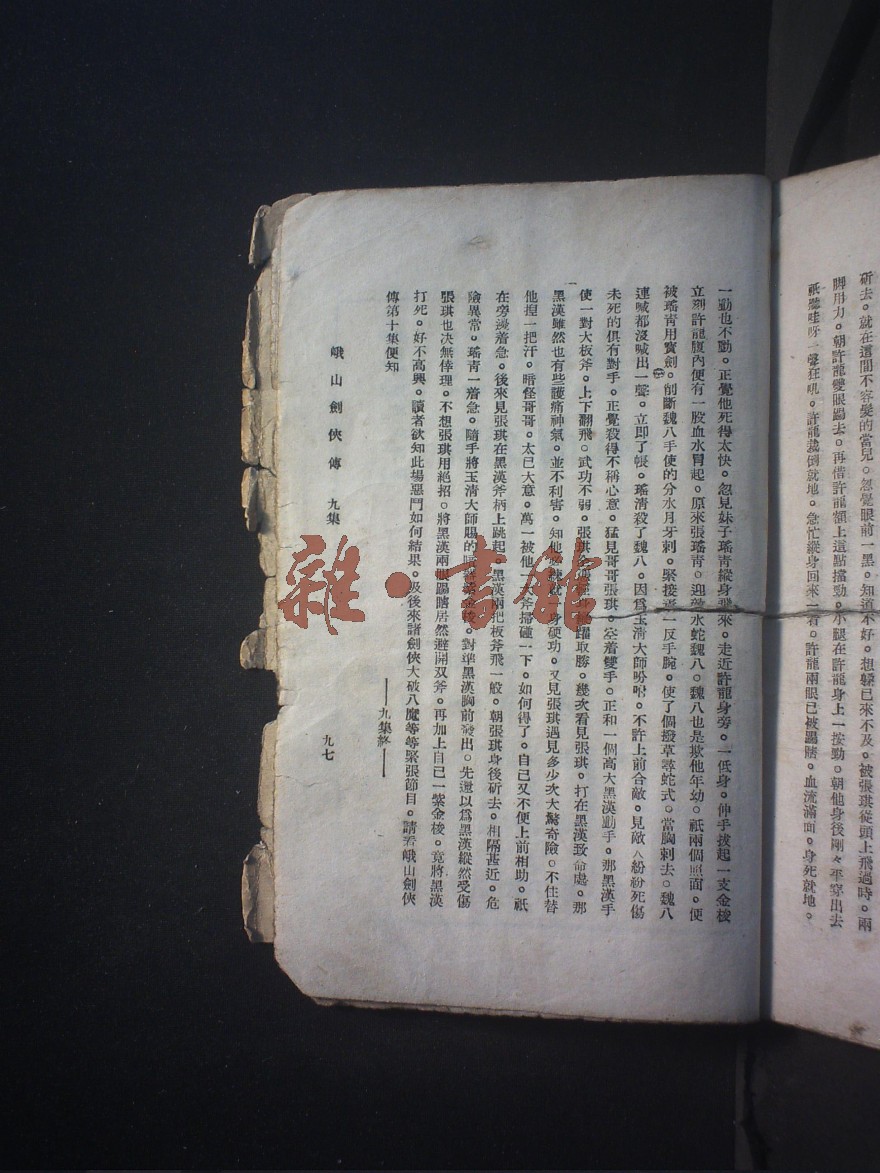 斫去。就在這間不容髮的當兒。忽覺眼前一黑。知道不好。想躱已來不及。被張琪從頭上飛過時。兩
脚用力。朝許龍雙眼踢去。再借許龍額上這點擋勁。小腿在許龍身上一按勁。朝他身後剛々平穿出去
祇聽哇呀一聲狂吼。許龍栽倒就地。急忙縱身回來一看。許龍兩眼已被踢瞎。血流滿面。身死就地。
一動也不動。正覺他死得太快。忽見妹子瑤靑縱身飛來。走近許龍身旁。一低身。伸手拔起一支金梭
立刻許龍腹內便有一股血水冒起。原來張瑤靑。迎敵水蛇魏八。魏八也是欺他年幼。祇兩個照面。便
被瑤靑用寶劍。削斷魏八手使的分水月牙刺。緊接着一反手腕。使了個撥草尋蛇式。當胸刺去。魏八
連喊都沒喊出一聲。立即了帳。瑤清殺了魏八。因爲玉清大師吩咐。不許上前合敵。見敵人紛紛死傷
未死的俱有對手。正覺殺得不稱心意。猛見哥哥張琪。空着雙手。正和一個高大黑漢動手。那黑漢手
使一對大板斧。上下翻飛。武功不弱。張琪全 取勝。幾次看見張琪。打在黑漢致命處。那
黑漢雖然也有些護痛神氣。並不利害。知他 一身硬功。又見張琪遇見多少次大驚奇險。不住替
他揑一把汗。暗怪哥哥。太已大意。萬一被他 大斧掃碰一下。如何得了。自己又不便上前相助。祇
在旁邊着急。後來見張琪在黑漢斧柄上跳起。黑漢兩把板斧飛一般。朝張琪身後斫去。相隔甚近。危
險異常。瑤靑一着急。隨手將玉清大師賜的 紫金梭。對準黑漢胸前發出。先還以爲黑漢縱然受傷
張琪也决無倖理。不想張琪用絕招。將黑漢兩眼踢瞎居然避開双斧。再加上自己一紫金梭。竟將黑漢
打死。好不高興。讀者欲知此場惡鬥如何結果。及後來諸劍俠大破八魔等等緊張節目。請看峨山劍俠
傳第十集便知
——九集終——
峨山劍俠傳 九集
九七
雜·書館